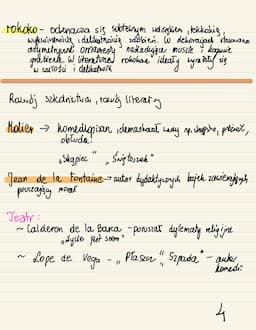 rokoko - odznacza się subtelnym wdziękiem, lekkością,
wykwintnością i delikatnością zdobień. W dekoracjach stosowano
asymetryczne ornamenty naśladujące muszle i koguci
grzebień. W literaturze rokokowe ideały wyraziły się
w czułości i delikatności
Rozwój szkolnictwa, rozwój literatury
Molier → komediopisarz, demaskował wady np. skąpstwo, próżność,
obłuda.
"Skąpiec" "Świętoszek"
Jean de la Fontaine → autor dydaktycznych bajek zawierających
pouczający morał
Teatr:
~ Calderon de la Barca - poruszał dylematy religijne
"Życie jest snem"
~ Lope de Vega - "Płaszcz i Szpada" - autor
komedii
4